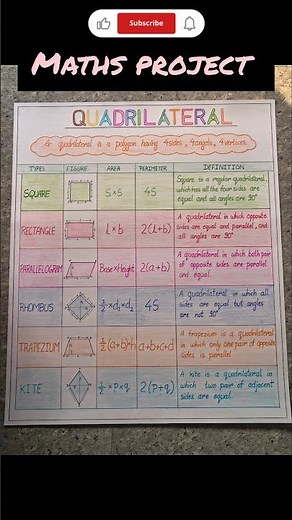 Subscribe
MATHS PROJECT
QUADRILATERAL
A quadrilateral is a polygon having 4 sides, 4 angels, 4 vertices
TYPES FIGURE AREA PERIMETER DEFINITION
SQUARE S×S 4S Square is a regular quadrilateral,
which has all the four sides are
equal and all angles are 90°
RECTANGLE L×b 2(L+b) A quadrilateral in which opposite
sides are equal and parallel, and
all angles are 90°
PARALLELOGRAM Base×Height 2(a+b) A quadrilateral in which both pair
of opposite sides are parallel
and equal.
RHOMBUS 1/2×d₁×d₂ 4S A quadrilateral in which all
sides are equal but angles
are not 90°
TRAPEZIUM 1/2(a+b)×h a+b+c+d A trapezium is a quadrilateral
in which only one pair of opposite
sides is parallel
KITE 1/2×p×q 2(p+q) A kite is a quadrilateral in
which two pair of adjacent
sides are equal.